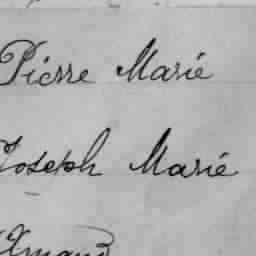 Pierre Marié
Joseph Marié
Amand